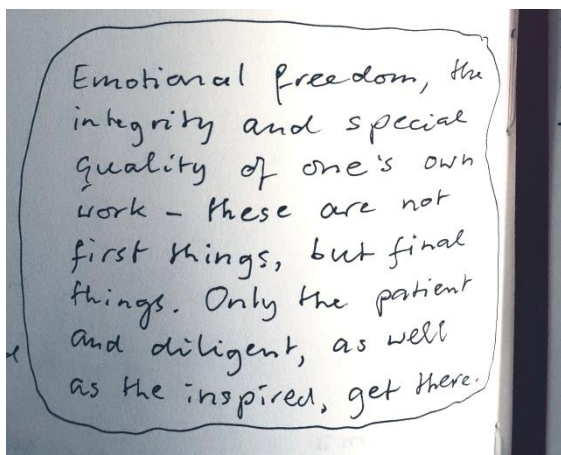 Emotional freedom, the
integrity and special
quality of one's own
work – these are not
first things, but final
things. Only the patient
and diligent, as well
as the inspired, get there.